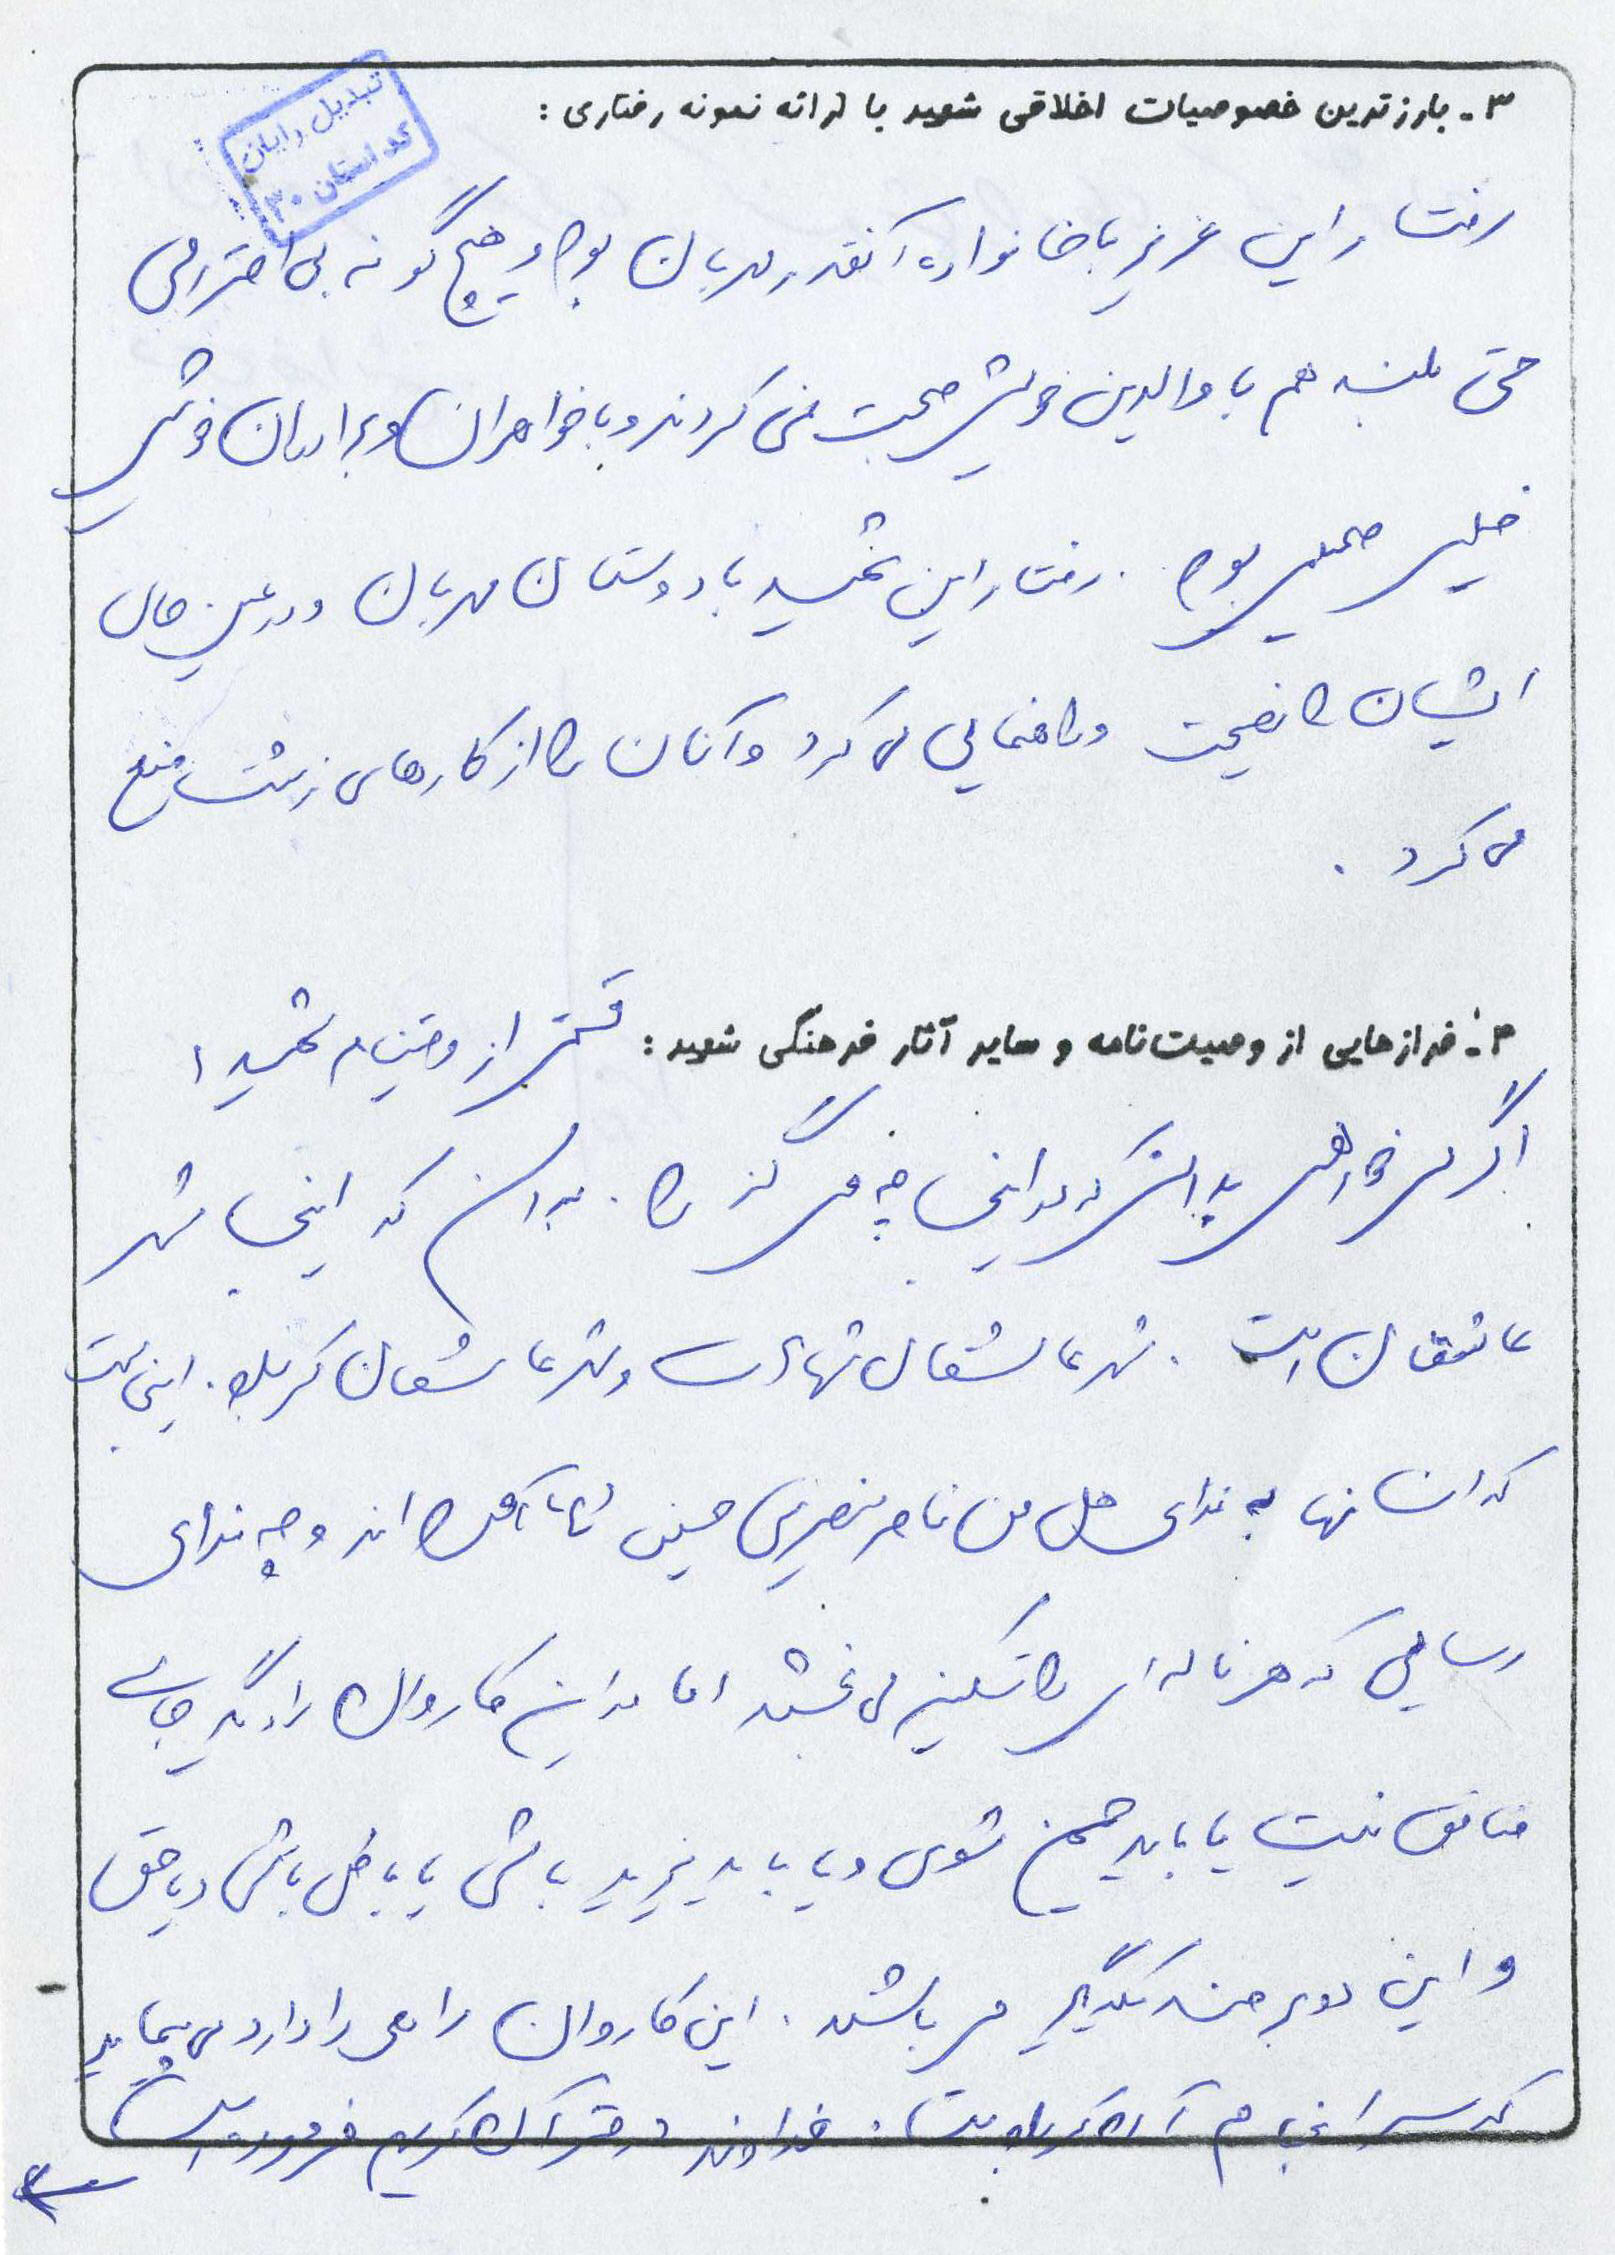 تبدیل رایان
کد استان ۳۰
۳ـ بارزترین خصوصیات اخلاقی شهید با ارائه نمونه رفتاری :
رفتار این عزیز با خانواده آنقدر مهربان بود و هیچ گونه بی احترامی
حتی بلند هم با والدین خویش صحبت نمی کردند و با خواهران و برادران خویش
خیلی صمیمی بود . رفتار این شهید با دوستان مهربان و در عین حال
ایشان را نصیحت و راهنمایی می کرد و آنان را از کارهای زشت منع
می کرد .
۴ـ فرازهایی از وصیت‌نامه و سایر آثار فرهنگی شهید : قسمتی از وصیتنامه شهید :
اگر می خواهی بدانی که در اینجا چه می گذرد . بدان که اینجا شهر
عاشقان است . شهر عاشقان شهادت و شهر عاشقان کربلا . اینجاست
که انسانها به ندای هل من ناصر ینصرنی حسین آمده اند و چه ندای
رسایی که هر ناله ای را تسکین می بخشد اما در این کاروان دیگر جای
منافق نیست یا باید حسین شوی و یا باید یزید باشی یا باطل باشی و یا حق
و این دو بر ضد یکدیگر می باشند . این کاروان راهی را دارد می پیماید
که سرانجام آن کربلاست . خداوند در قرآن کریم فرموده است